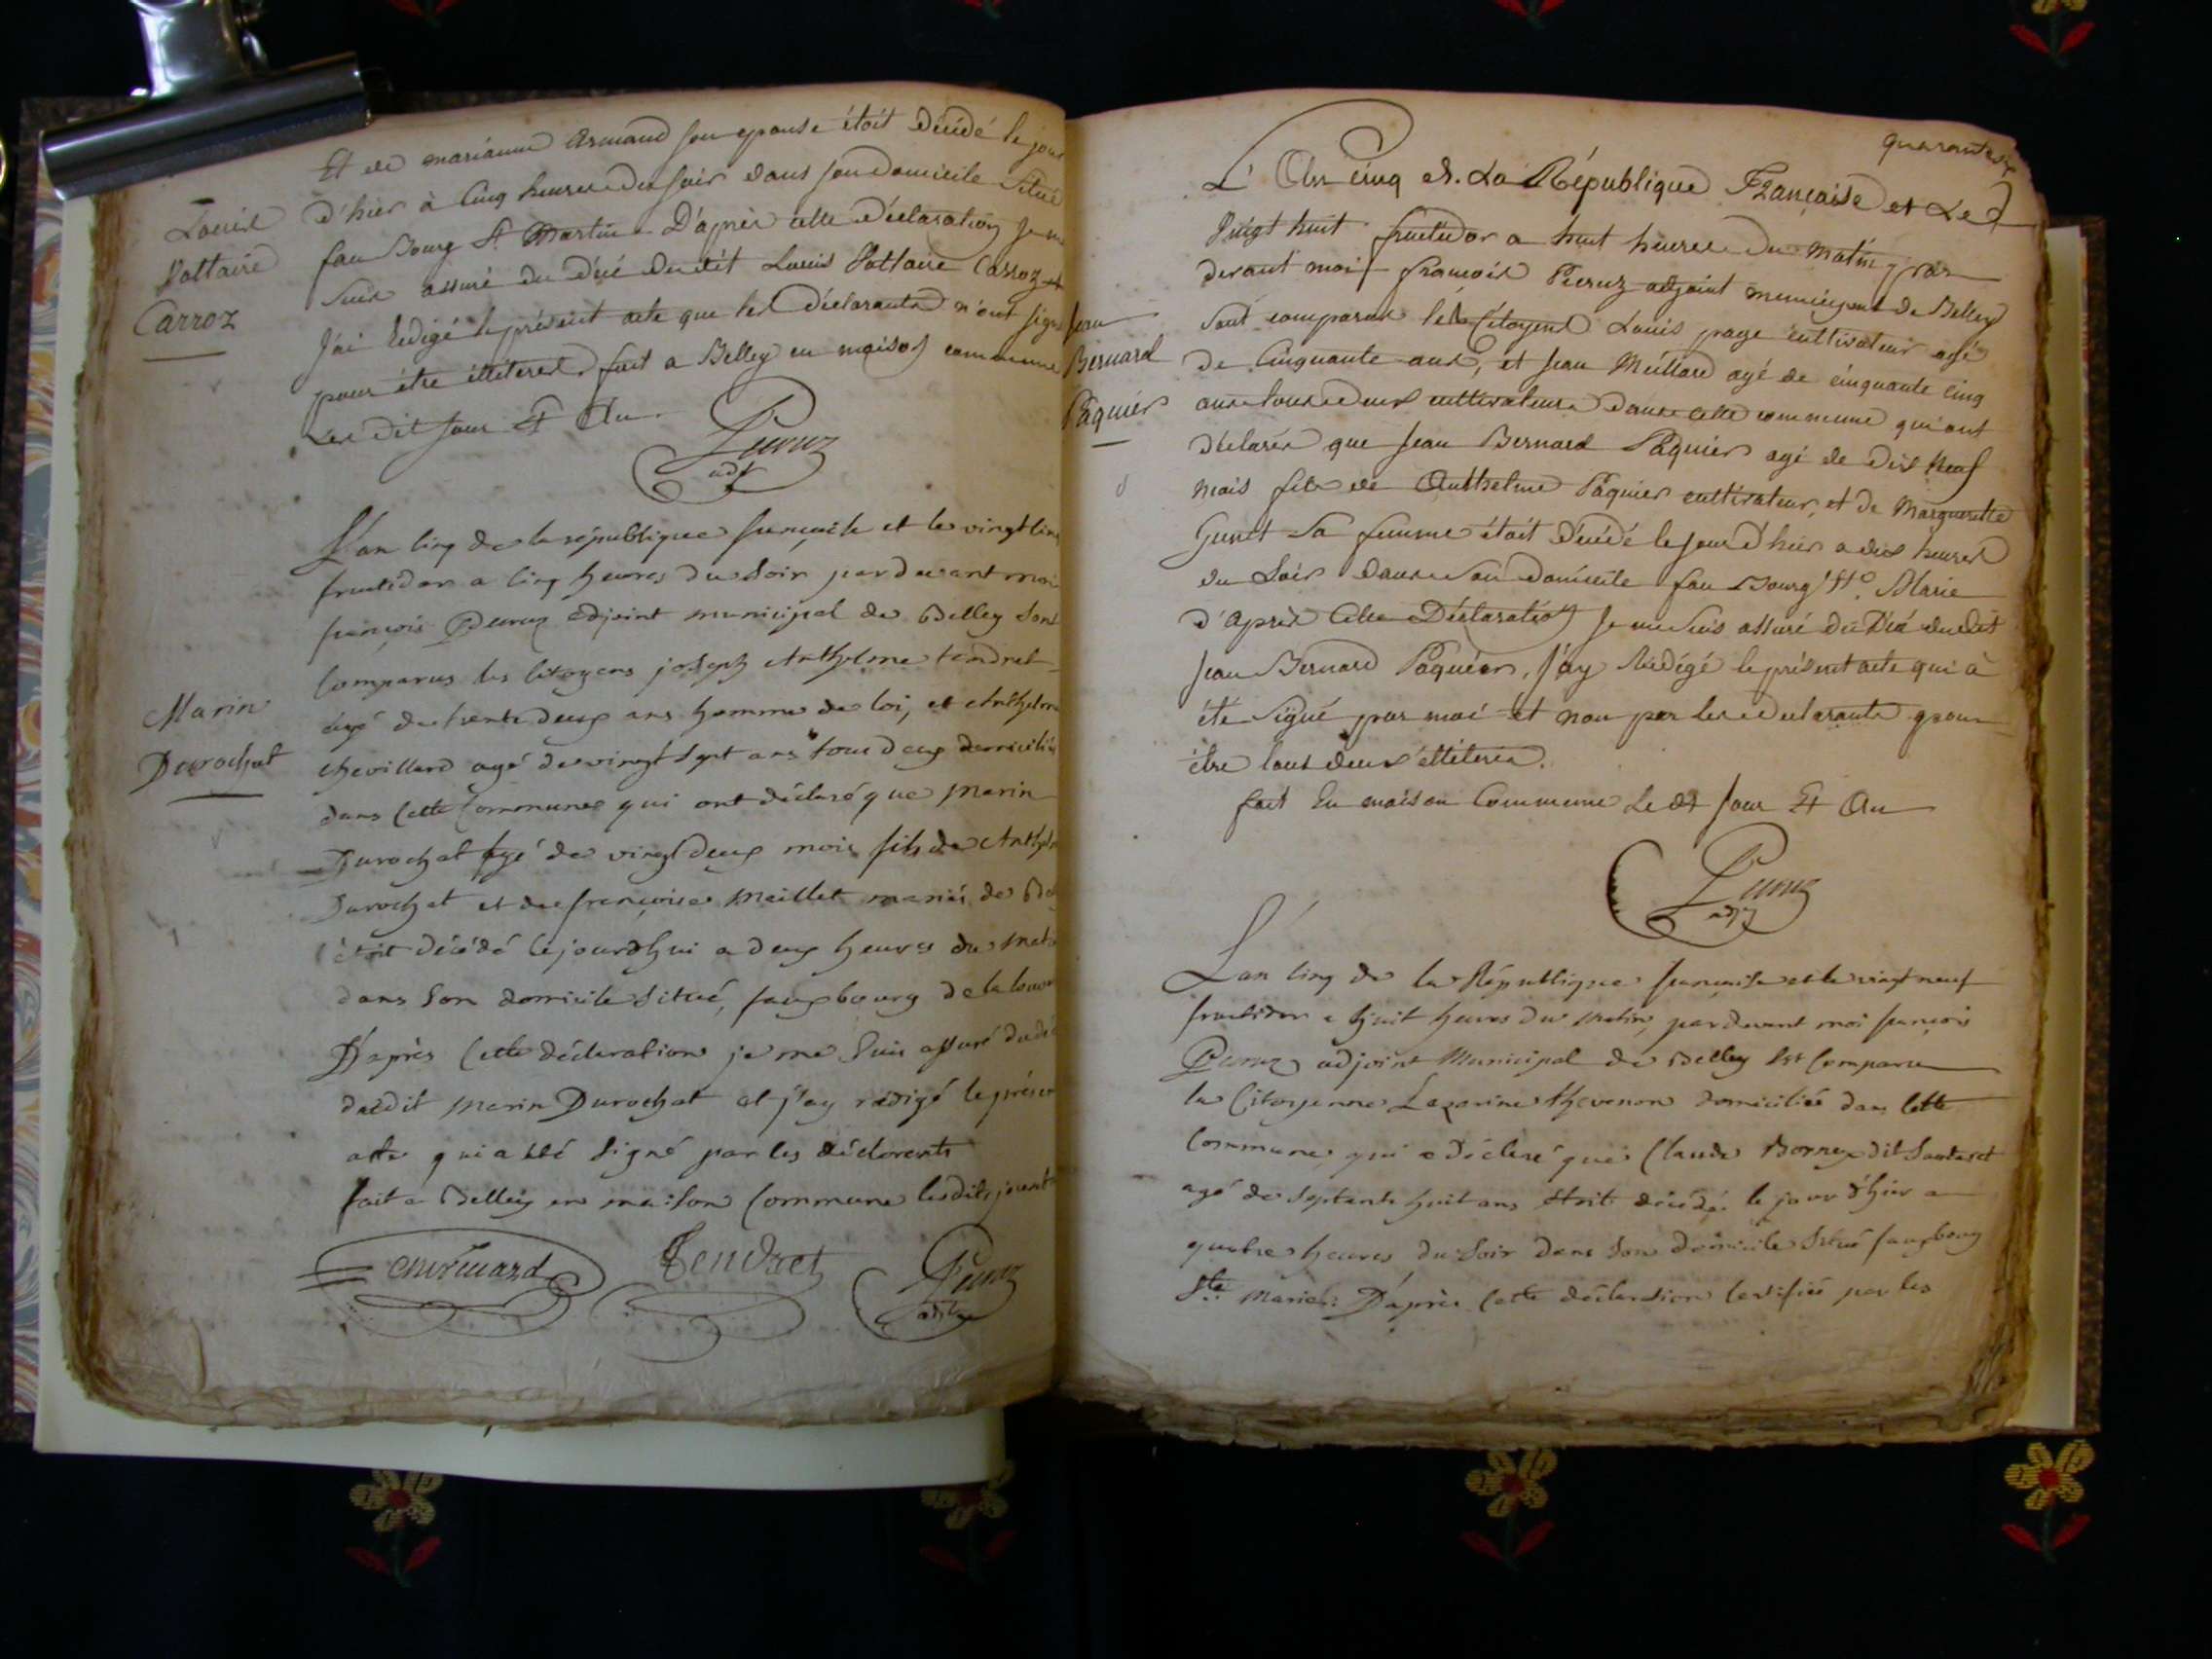 Et de marianne Armand son epouse étoit décédé le jour
Louis
Voltaire
Carroz
d'hier à cinq heures du soir dans son domicile situé
fau Bourg St Martin D'après cette Déclaration je me
suis assuré du décé dudit Louis Voltaire Carroz et
j'ai rédigé le présent acte que les déclarants n'ont signé
pour être illitérés fait a Belley en maison commune
Les dit jour Et An.
Peruz
adjt
L'an cinq de la république française et le vingt cinq
fructidor a cinq heures du soir par devant moi
françois Peruz adjoint municipal de Belley sont
Comparus les citoyens joseph Anthelme tendret
Marin
Durochat
agé de trente deux ans homme de loi, et Anthelme
chevillard agé de vingt sept ans tous deux domiciliés
dans cette Commune qui ont déclaré que Marin
Durochat agé de vingt deux mois fils de Anthelm
Durochat et de françoise Maillet mariés de Bel
étoit décédé cejourdhui a deux heures du mat
dans son domicile situé, fauxbourg de
D'après cette déclaration je me suis assuré du dé
dudit Marin Durochat et j'ay rédigé le présent
acte qui a été signé par les déclarants
fait a Belley en maison Commune lesdits jour et
chevillard Tendret Peruz
adjt
quarante
L'An cinq de La République Française et Le
Vingt huit fructidor a huit heures du matin par
devant moi françois Peruz adjoint municipal de Belley
Jean
Bernard
Pâquier
sont comparus les Citoyens Louis page cultivateur agé
de Cinquante ans, et Jean Meillard agé de cinquante cinq
ans tous deux cultivateurs dans cette commune qui ont
déclarés que Jean Bernard Pâquier agé de dix neuf
mois fils de Anthelme Pâquier cultivateur, et de Margueritte
Gunet sa femme étoit décédé le jour d'hier a dix heures
du soir dans son domicile fau Bourg Ste. Marie
d'après cette Déclaration je me suis assuré du Décé dudit
Jean Bernard Pâquier, j'ay Rédigé le présent acte qui à
été signé par moi et non par les declarants pour
être tout deux illitérés.
fait En maison Commune Le dt Jour Et An
Peruz
adjt
L'an cinq de la République française et le vingt neuf
fructidor a huit heures du matin, par devant moi françois
Peruz adjoint Municipal de Belley Est Comparu
la Citoyenne Lazarine thevenon domiciliée dans cette
Commune, qui a déclaré que Claude Bornex dit
agé de septante huit ans étoit décédé le jour d'hier a
quatre heures du soir dans son domicile situé fauxbourg
Ste Marie. D'après cette déclaration certifiée par les